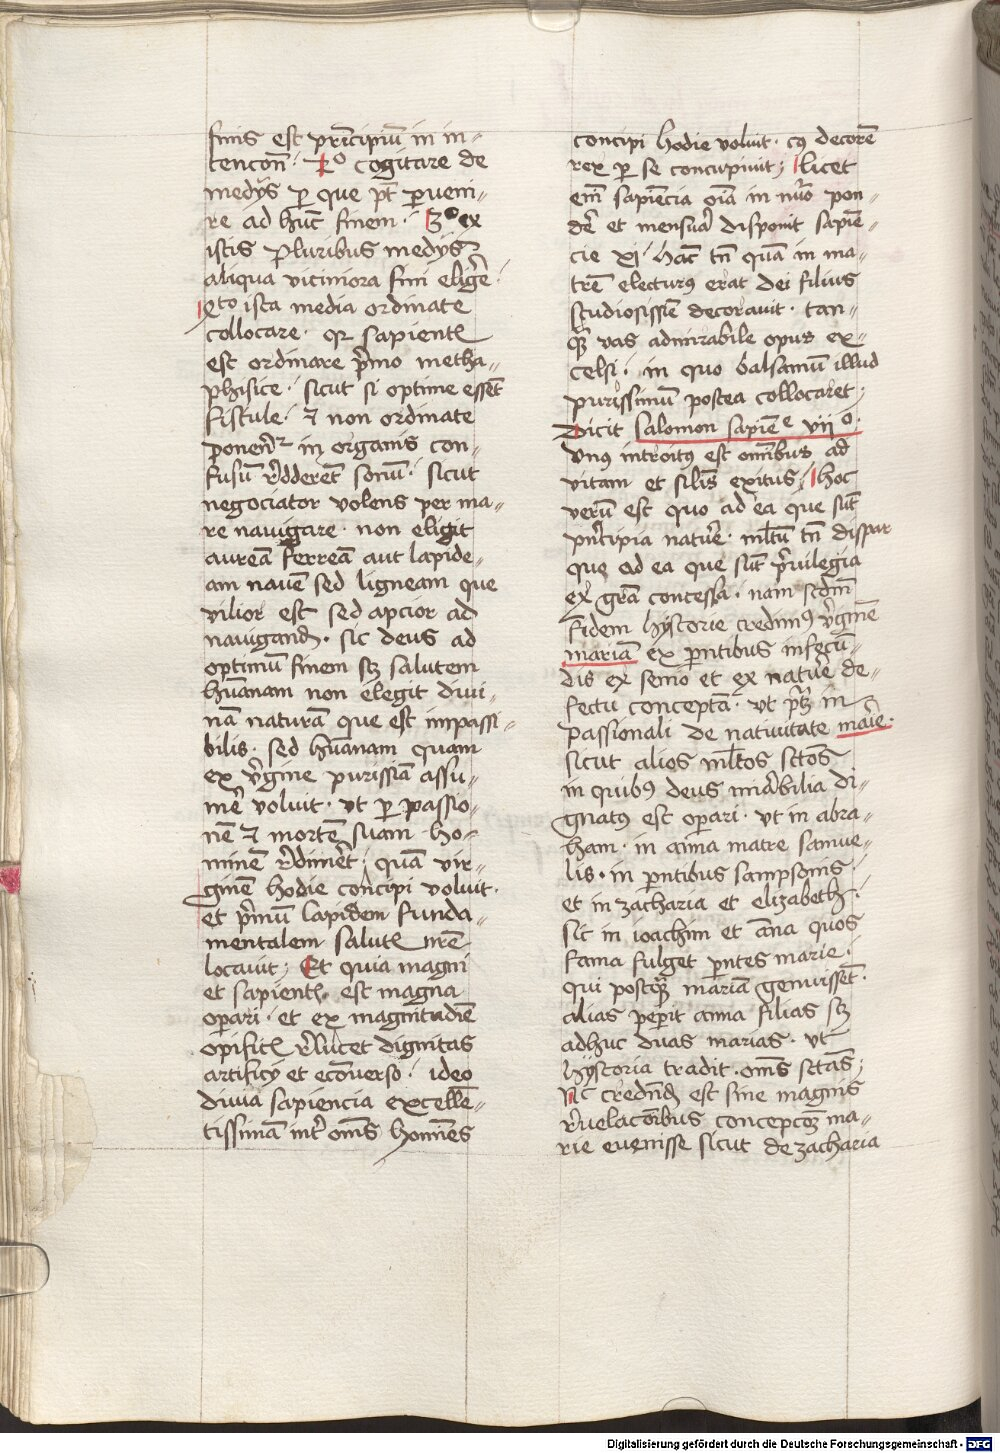 finis est prīcipiū in in-
tencōn̄. 2º cogitare de
medijs p que pt̄ pueni-
re ad hūc finem. 3º ex
istis pluribus medijs
aliqua viciniora fini eligē.
qrto ista media ordinate
collocare. qr sapient
est ordinare p̄mo metha-
phisice. sicut si optime essēt
fistule. et non ordinate
ponen̄r in organis con-
fusū r̄dderēt sonū. sicut
negociator volens per ma-
re nauigare. non eligit
aureā ferreā aut lapide-
am nauē sed ligneam que
vilior est sed apcior ad
nauigand. sic deus ad
optimū finem sz salutem
hūanam non elegit diui-
nā naturā que est impassi-
bilis. sed hūanam quam
ex v̄gine purissīa assu-
mē voluit. vt p passio-
nē et mortē suam ho-
minē r̄dimēt. quā vir-
ginē hodie concipi voluit.
et p̄mū lapidem funda-
mentalem salut nr̄e
locauit; Et quia magni
et sapient. est magna
opari. et ex magnitudīe
opific r̄lucet dignitas
artificij et ecōuerso. ideo
diuīa sapiencia excellē-
tissimā int̄ om̄s homīes
concipi hodie voluit. cuj decorē
rex p se concupiuit; licet
em̄ sapīecia oīa in nūo pon-
dē et mensura disponit sapīe-
cie xj. hāc tn̄ quā in ma-
trē electurus erat dei filius
studiosissīe decorauit. tan-
qz vas admirabile opus ex-
celsi. in quo balsamū illud
purissimū postea collocaret.
Dicit Salomon sapīe vijº.
vnus introitus est om̄ibus ad
vitam et silīs exitus; hoc
verū est quo ad ea que sūt
pn̄cipia nature. ml̄tū tn̄ dispar
que ad ea que sūt p̄uilegia
ex gr̄a concessa. nam scd̄m
fidem hystorie credim9 v̄ginē
mariā ex pn̄tibus infecū-
dis ex senio et ex nature de-
fectu conceptā. vt ptz in
passionali de natiuitate marīe.
sicut alios ml̄tos sctōs
in quibus deus mirabilia di-
gnatus est opari. vt in abra-
ham. in anna matre samue-
lis. in pn̄tibus sampsonis.
et in zacharia et elizabeth.
sic in ioachim et āna quos
fama fulget pn̄tes marie.
qui postqz mariā genuissēt.
alias peperit anna filias sz
adhuc duas marias. vt
hystoria tradit. om̄s sctās;
Nc credend est sine magnis
r̄uelacōibus concepcōz ma-
rie euenisse sicut de zacharia
Digitalisierung gefördert durch die Deutsche Forschungsgemeinschaft - DFG